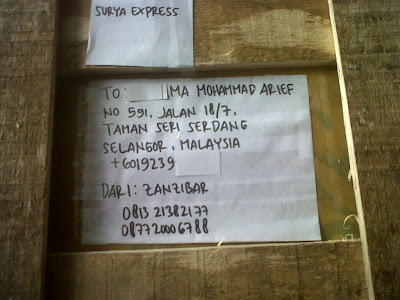 SURYA EXPRESS
TO: IMA MOHAMMAD ARIEF
NO 591, JALAN 18/7,
TAMAN SERI SERDANG
SELANGOR, MALAYSIA
+6019239
DARI: ZANZIBAR
0813 21382177
087720006788